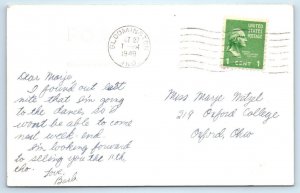 BLOOMINGTON
1948
IND.
UNITED STATES
POSTAGE
1 CENT 1
Dear Marje,
I found out last
nite that I'm going
to the dance, so I
won't be able to come
next week end.
I'm looking forward
to seeing you the 11th
tho.
Love,
Barb
Miss Marje
219 Oxford College
Oxford, Ohio